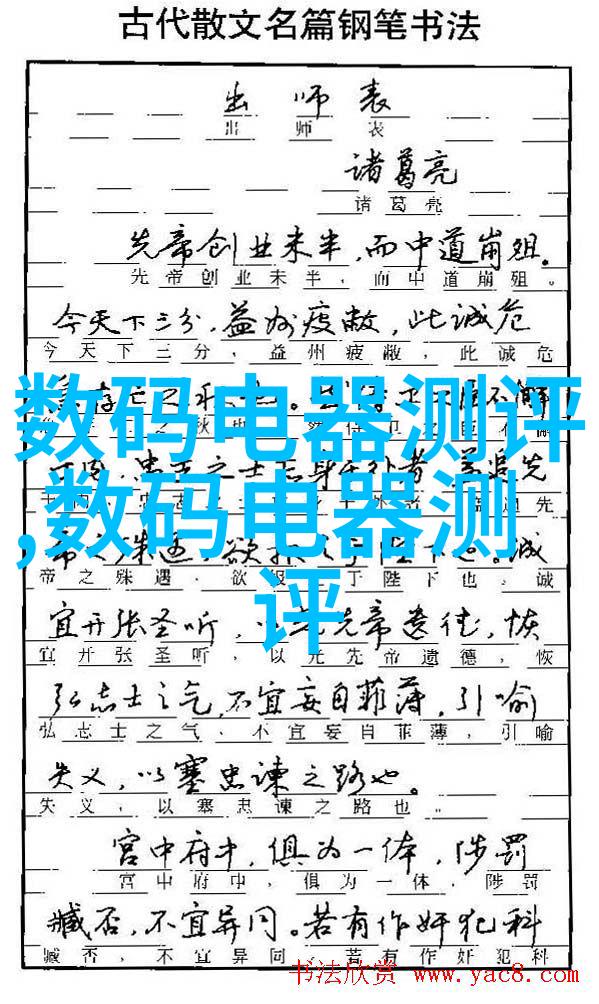 古代散文名篇钢笔书法
出师表
出师表
诸葛亮
诸葛亮
先帝创业未半,而中道崩殂。
先帝创业未半,而中道崩殂。
今天下三分,益州疲敝,此诚危
今天下三分,益州疲敝,此诚危
数码电器测评
,数码电器测
评
帝之殊遇,欲报 于陛下也。诚
宜开张圣听,以光先帝遗德,恢
宜开张圣听,以光先帝遗德,恢
弘志士之气,不宜妄自菲薄,引喻
弘志士之气,不宜妄自菲薄,引喻
失义,以塞忠谏之路也。
失义,以塞忠谏之路也。
宫中府中,俱为一体,陟罚
宫中府中,俱为一体,陟罚
臧否,不宜异同。若有作奸犯科
臧否,不宜异同。若有作奸犯科
书法欣赏 www.yac8.com